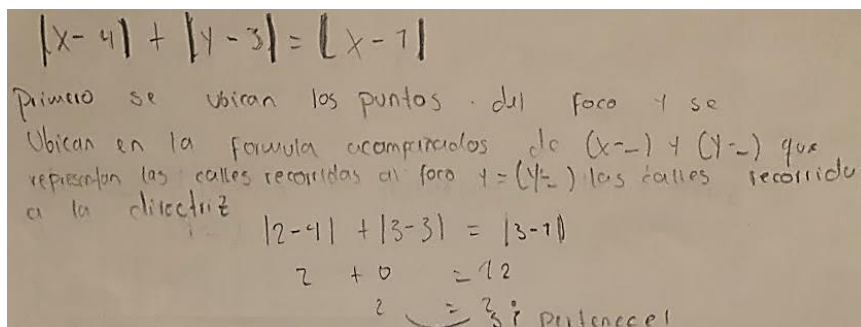 |x-4| + |y-3| = |x-1|
Primero se ubican los puntos. del foco y se
Ubican en la formula acompañados de (x-_) y (y-_) que
representan las calles recorridas al foco y = (y=_) las calles recorrida
a la directriz
|2-4| + |3-3| = |3-1|
2 + 0 = 12
2 = 2 si pertenece!